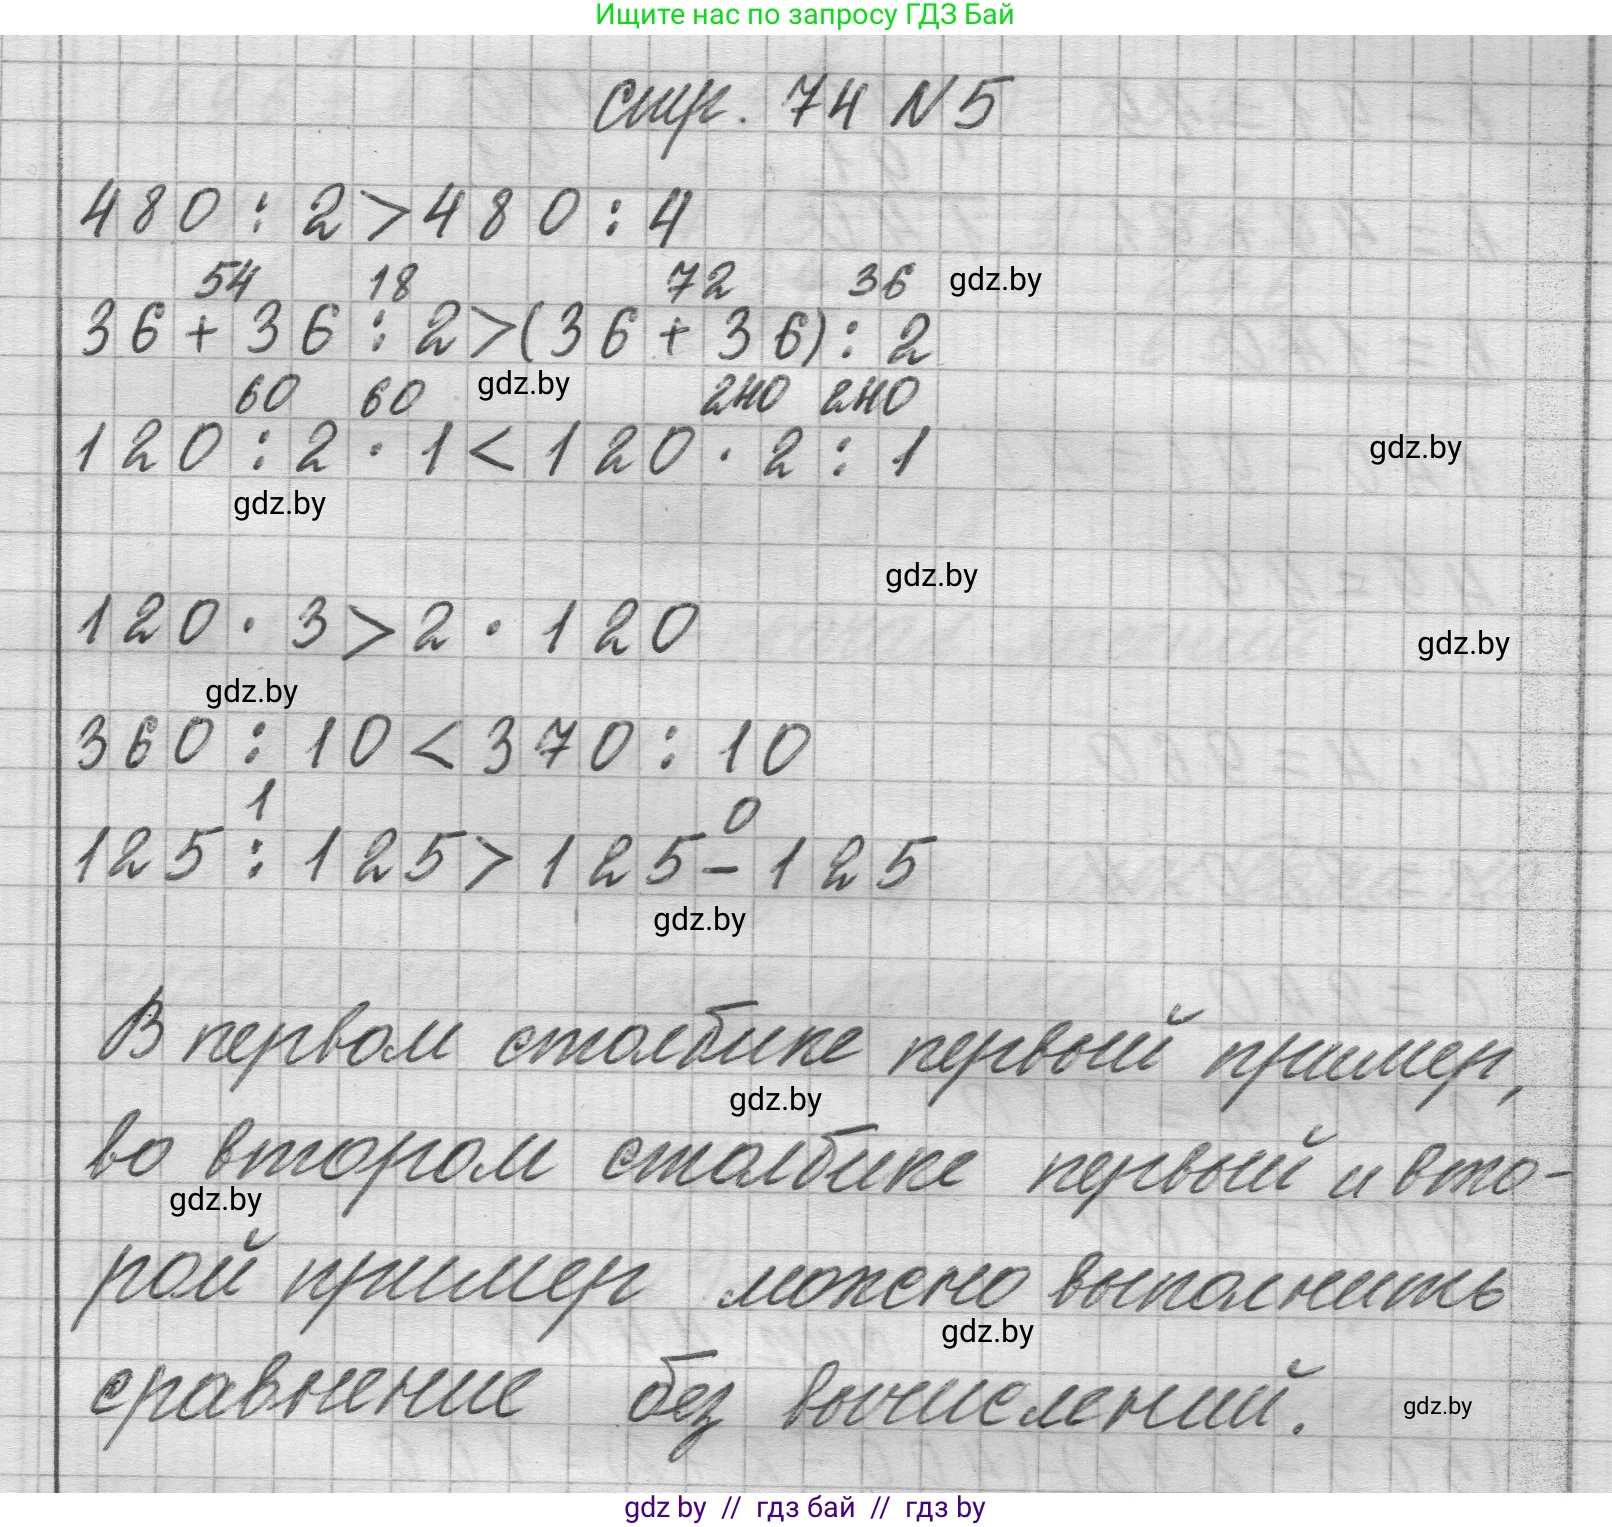 Ищите нас по запросу ГДЗ Бай
стр. 74 №5
480 : 2 > 480 : 4
54 18 72 36 gdz.by
36 + 36 : 2 > (36 + 36) : 2
60 60 gdz.by 240 240
120 : 2 · 1 < 120 · 2 : 1 gdz.by
gdz.by
gdz.by
120 · 3 > 2 · 120 gdz.by
gdz.by
360 : 10 < 370 : 10
1 0
125 : 125 > 125 - 125
gdz.by
В первом столбике первый пример,
gdz.by
во втором столбике первый и вто-
gdz.by
рой пример можно выполнить
gdz.by
сравнение без вычислений. gdz.by
gdz by // гдз бай // гдз by